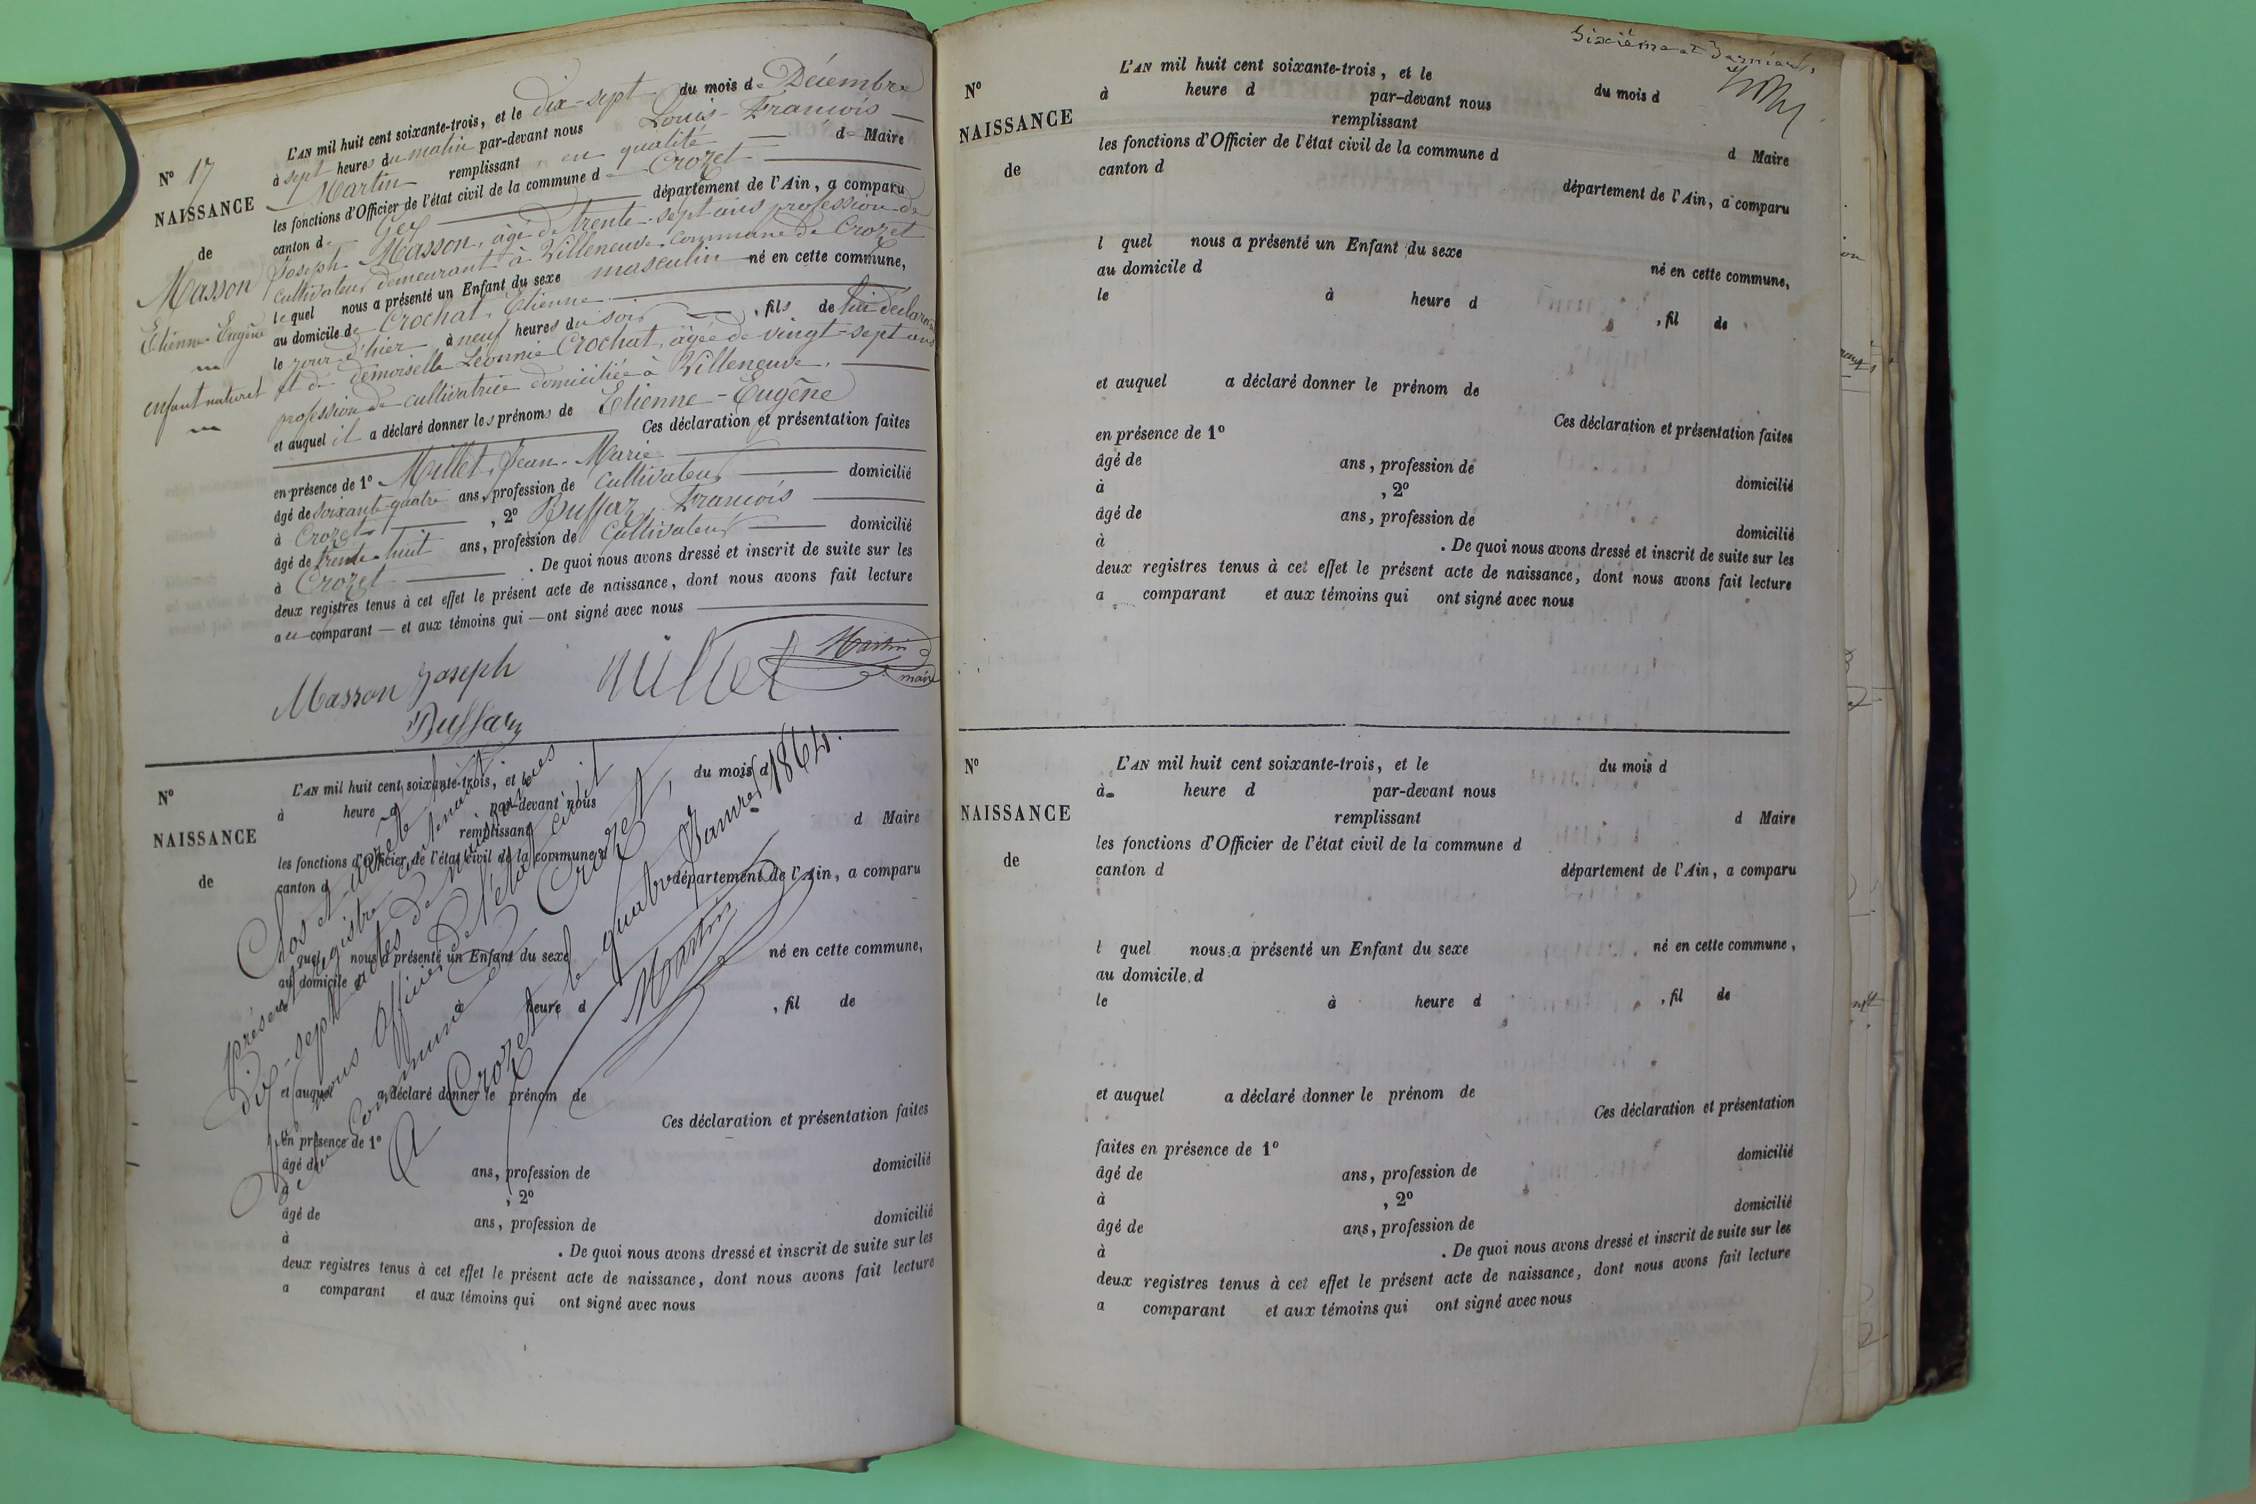 N° 17
NAISSANCE
de
Masson
Etienne-Eugène
enfant naturel
L'AN mil huit cent soixante-trois, et le dix-sept du mois de Décembre
à sept heures du matin par-devant nous Louis-François
Martin remplissant, en qualité de Maire
les fonctions d'Officier de l'état civil de la commune d Crozet
canton de Gex département de l'Ain, a comparu
Joseph Masson, âgé de trente-sept ans profession de
cultivateur demeurant à Villeneuve commune de Crozet
lequel nous a présenté un Enfant du sexe masculin né en cette commune,
au domicile de Crochat, Etienne
le jour d'hier à neuf heures du soir, fils de lui déclarant
et de demoiselle Léonnie Crochat, âgée de vingt-sept ans
profession de cultivatrice domiciliée à Villeneuve.
et auquel il a déclaré donner les prénoms de Etienne-Eugène
Ces déclaration et présentation faites
en présence de 1° Millet, Jean-Marie
âgé de soixante-quatre ans, profession de cultivateur domicilié
à Crozet, 2° Buffaz, François
âgé de trente-huit ans, profession de cultivateur domicilié
à Crozet. De quoi nous avons dressé et inscrit de suite sur les
deux registres tenus à cet effet le présent acte de naissance, dont nous avons fait lecture
au comparant et aux témoins qui ont signé avec nous
Masson Joseph
Millet
Martin
maire
Buffaz
N°
NAISSANCE
de
L'AN mil huit cent soixante-trois, et le du mois d
à heure d par-devant nous
remplissant d Maire
les fonctions d'Officier de l'état civil de la commune d
canton d département de l'Ain, a comparu
l quel nous a présenté un Enfant du sexe né en cette commune,
au domicile d
le à heure d , fil de
et auquel a déclaré donner le prénom de
Ces déclaration et présentation faites
en présence de 1°
âgé de ans, profession de domicilié
à , 2°
âgé de ans, profession de domicilié
à . De quoi nous avons dressé et inscrit de suite sur les
deux registres tenus à cet effet le présent acte de naissance, dont nous avons fait lecture
a comparant et aux témoins qui ont signé avec nous
Clos et arrêté le
présent registre contenant
dix-sept actes de naissances
par nous Officier de l'état civil
de la commune de Crozet,
A Crozet le quatre Janvier 1864.
Martin
Sixième et dernier f.
N°
NAISSANCE
de
L'AN mil huit cent soixante-trois, et le du mois d
à heure d par-devant nous
remplissant d Maire
les fonctions d'Officier de l'état civil de la commune d
canton d département de l'Ain, a comparu
l quel nous a présenté un Enfant du sexe né en cette commune,
au domicile d
le à heure d , fil de
et auquel a déclaré donner le prénom de
Ces déclaration et présentation faites
en présence de 1°
âgé de ans, profession de domicilié
à , 2°
âgé de ans, profession de domicilié
à . De quoi nous avons dressé et inscrit de suite sur les
deux registres tenus à cet effet le présent acte de naissance, dont nous avons fait lecture
a comparant et aux témoins qui ont signé avec nous
N°
NAISSANCE
de
L'AN mil huit cent soixante-trois, et le du mois d
à heure d par-devant nous
remplissant d Maire
les fonctions d'Officier de l'état civil de la commune d
canton d département de l'Ain, a comparu
l quel nous a présenté un Enfant du sexe né en cette commune,
au domicile d
le à heure d , fil de
et auquel a déclaré donner le prénom de
Ces déclaration et présentation
faites en présence de 1° domicilié
âgé de ans, profession de
à , 2° domicilié
âgé de ans, profession de
à . De quoi nous avons dressé et inscrit de suite sur les
deux registres tenus à cet effet le présent acte de naissance, dont nous avons fait lecture
a comparant et aux témoins qui ont signé avec nous